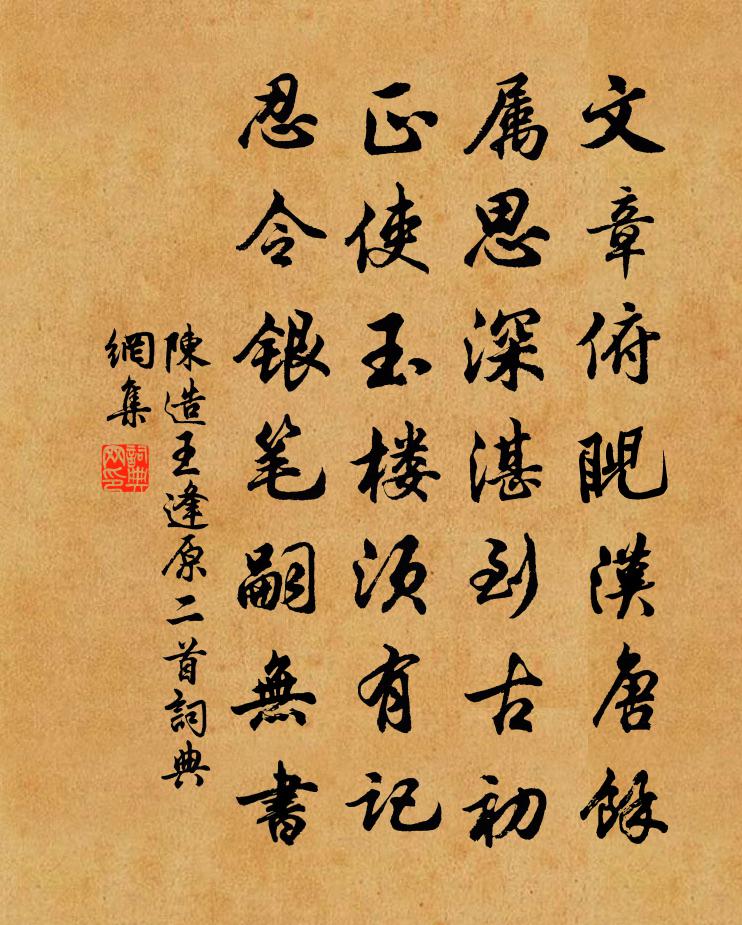 文章俯睨漢唐餘
属思深湛到古初
正使玉楼须有记
忍令银笔嗣無書
陳造王逢原二首詞典
網集
詞典
网印